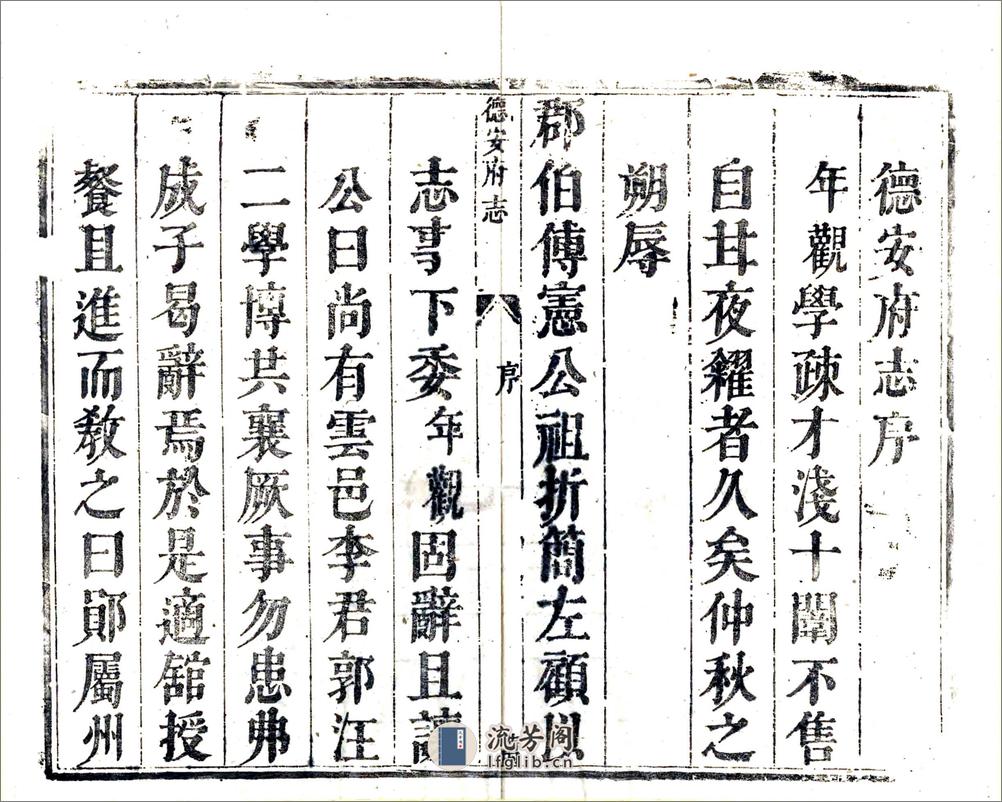 德安府志序
年觀學疎才淺十闈不售
自甘夜糴者久矣仲秋之
朔辱
郡伯傅憲公祖折簡左顧以
德安府志
序
志事下委年觀固辭且讓
公曰尚有雲邑李君郭汪
二學博共襄厥事勿患弗
成子曷辭焉於是適舘授
餐且進而教之曰鄖屬州
流芳阁
lfglib.cn